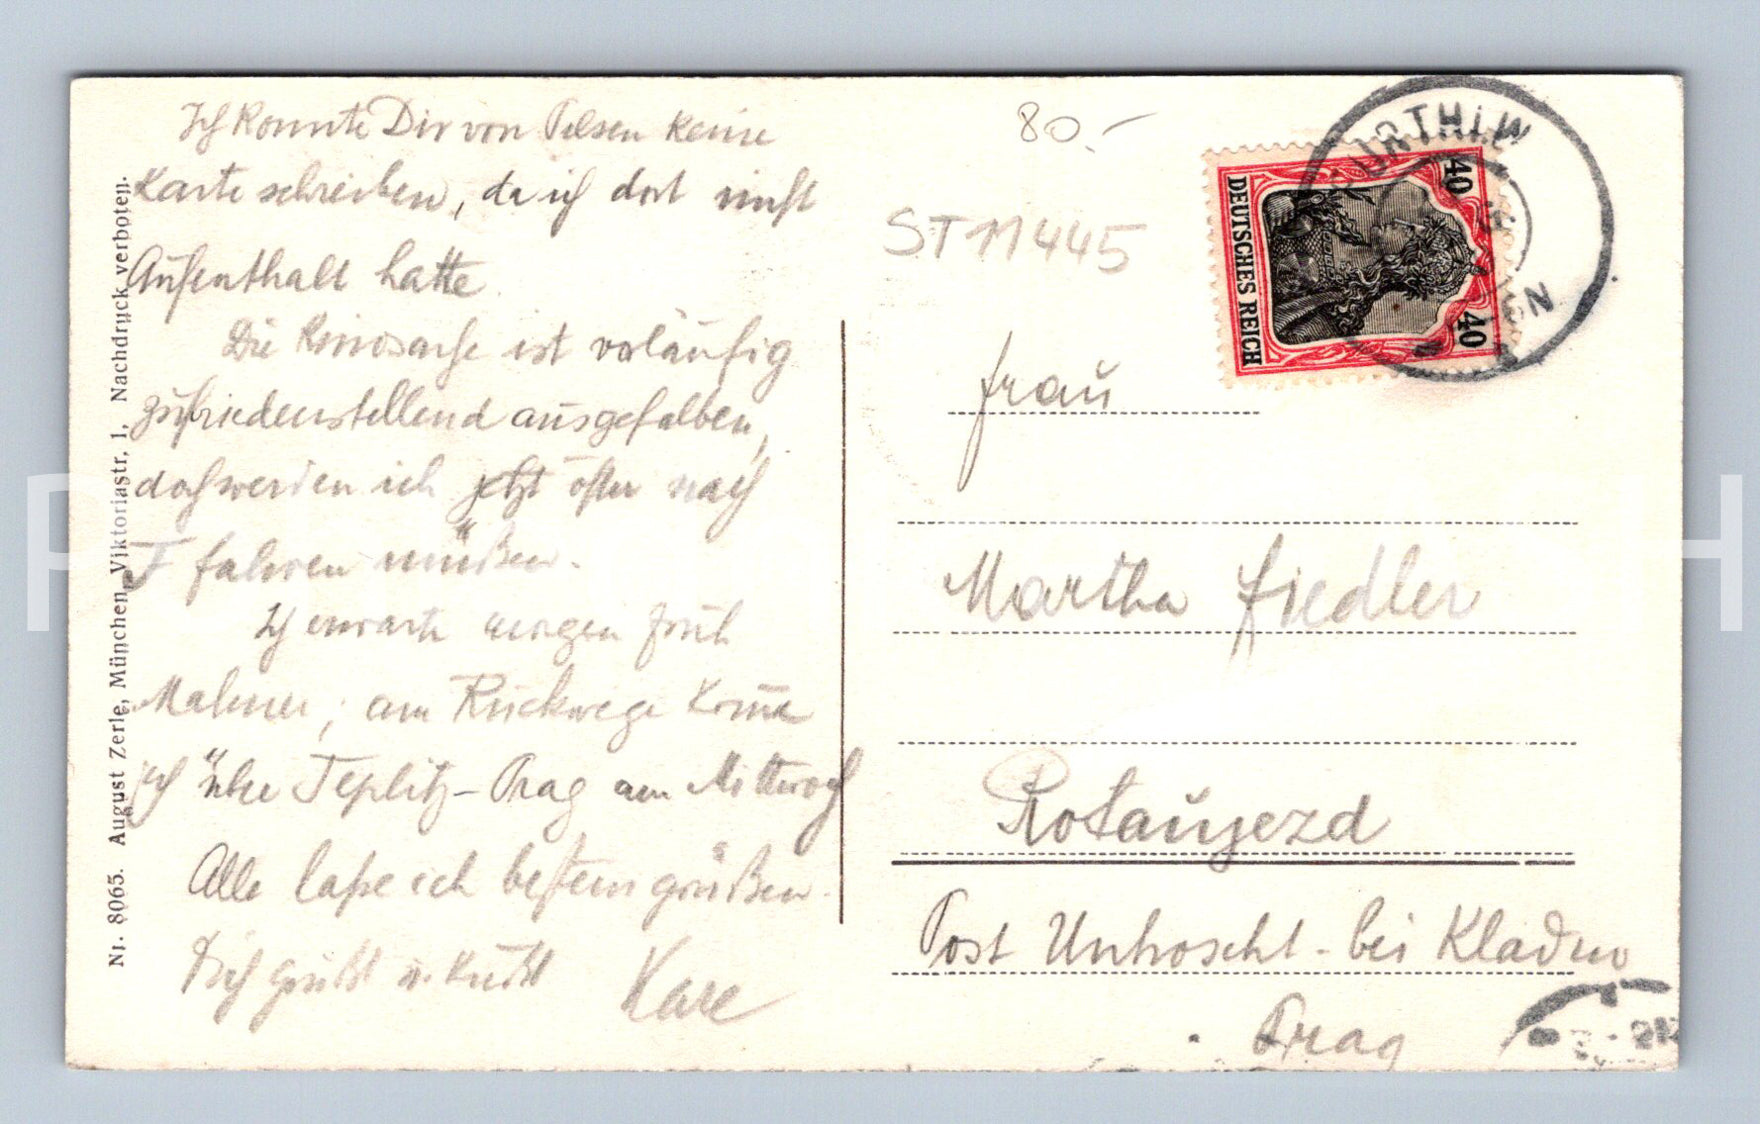 Ich konnte Dir von Pilsen keine
Karte schreiben, da ich dort nicht
Aufenthalt hatte.
Die Kinosache ist vorläufig
zufriedenstellend ausgefallen,
doch werden ich jetzt öfter nach
F fahren müßen.
Ich erwarte morgen früh
am Rückwege komme
ich über Teplitz-Prag am Mittwoch
Alle laße ich bestens grüßen.
Dich grüßt u. küßt
Nr. 8065. August Zerle, München, Viktoriastr. 1, Nachdruck verboten.
80.-
ST 11445
FURTH I. W
DEUTSCHES REICH
40
40
Frau
Martha Fiedler
Rotaujezd
Post Unhoscht - bei Kladno
Prag